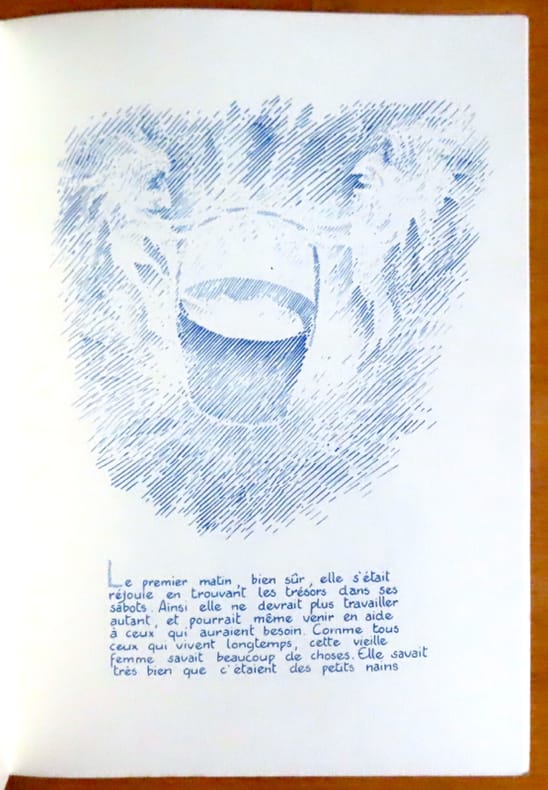 Le premier matin, bien sûr, elle s'était
réjouie en trouvant les trésors dans ses
sabots. Ainsi elle ne devrait plus travailler
autant, et pourrait même venir en aide
à ceux qui auraient besoin. Comme tous
ceux qui vivent longtemps, cette vieille
femme savait beaucoup de choses. Elle savait
très bien que c'étaient des petits nains